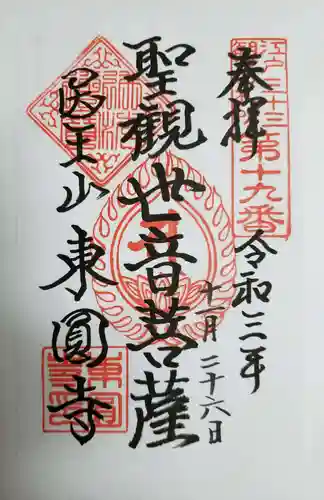 奉拝
江戸三十三
第十九番
令和三年
十一月二十六日
聖観世音菩薩
医王山東圓寺